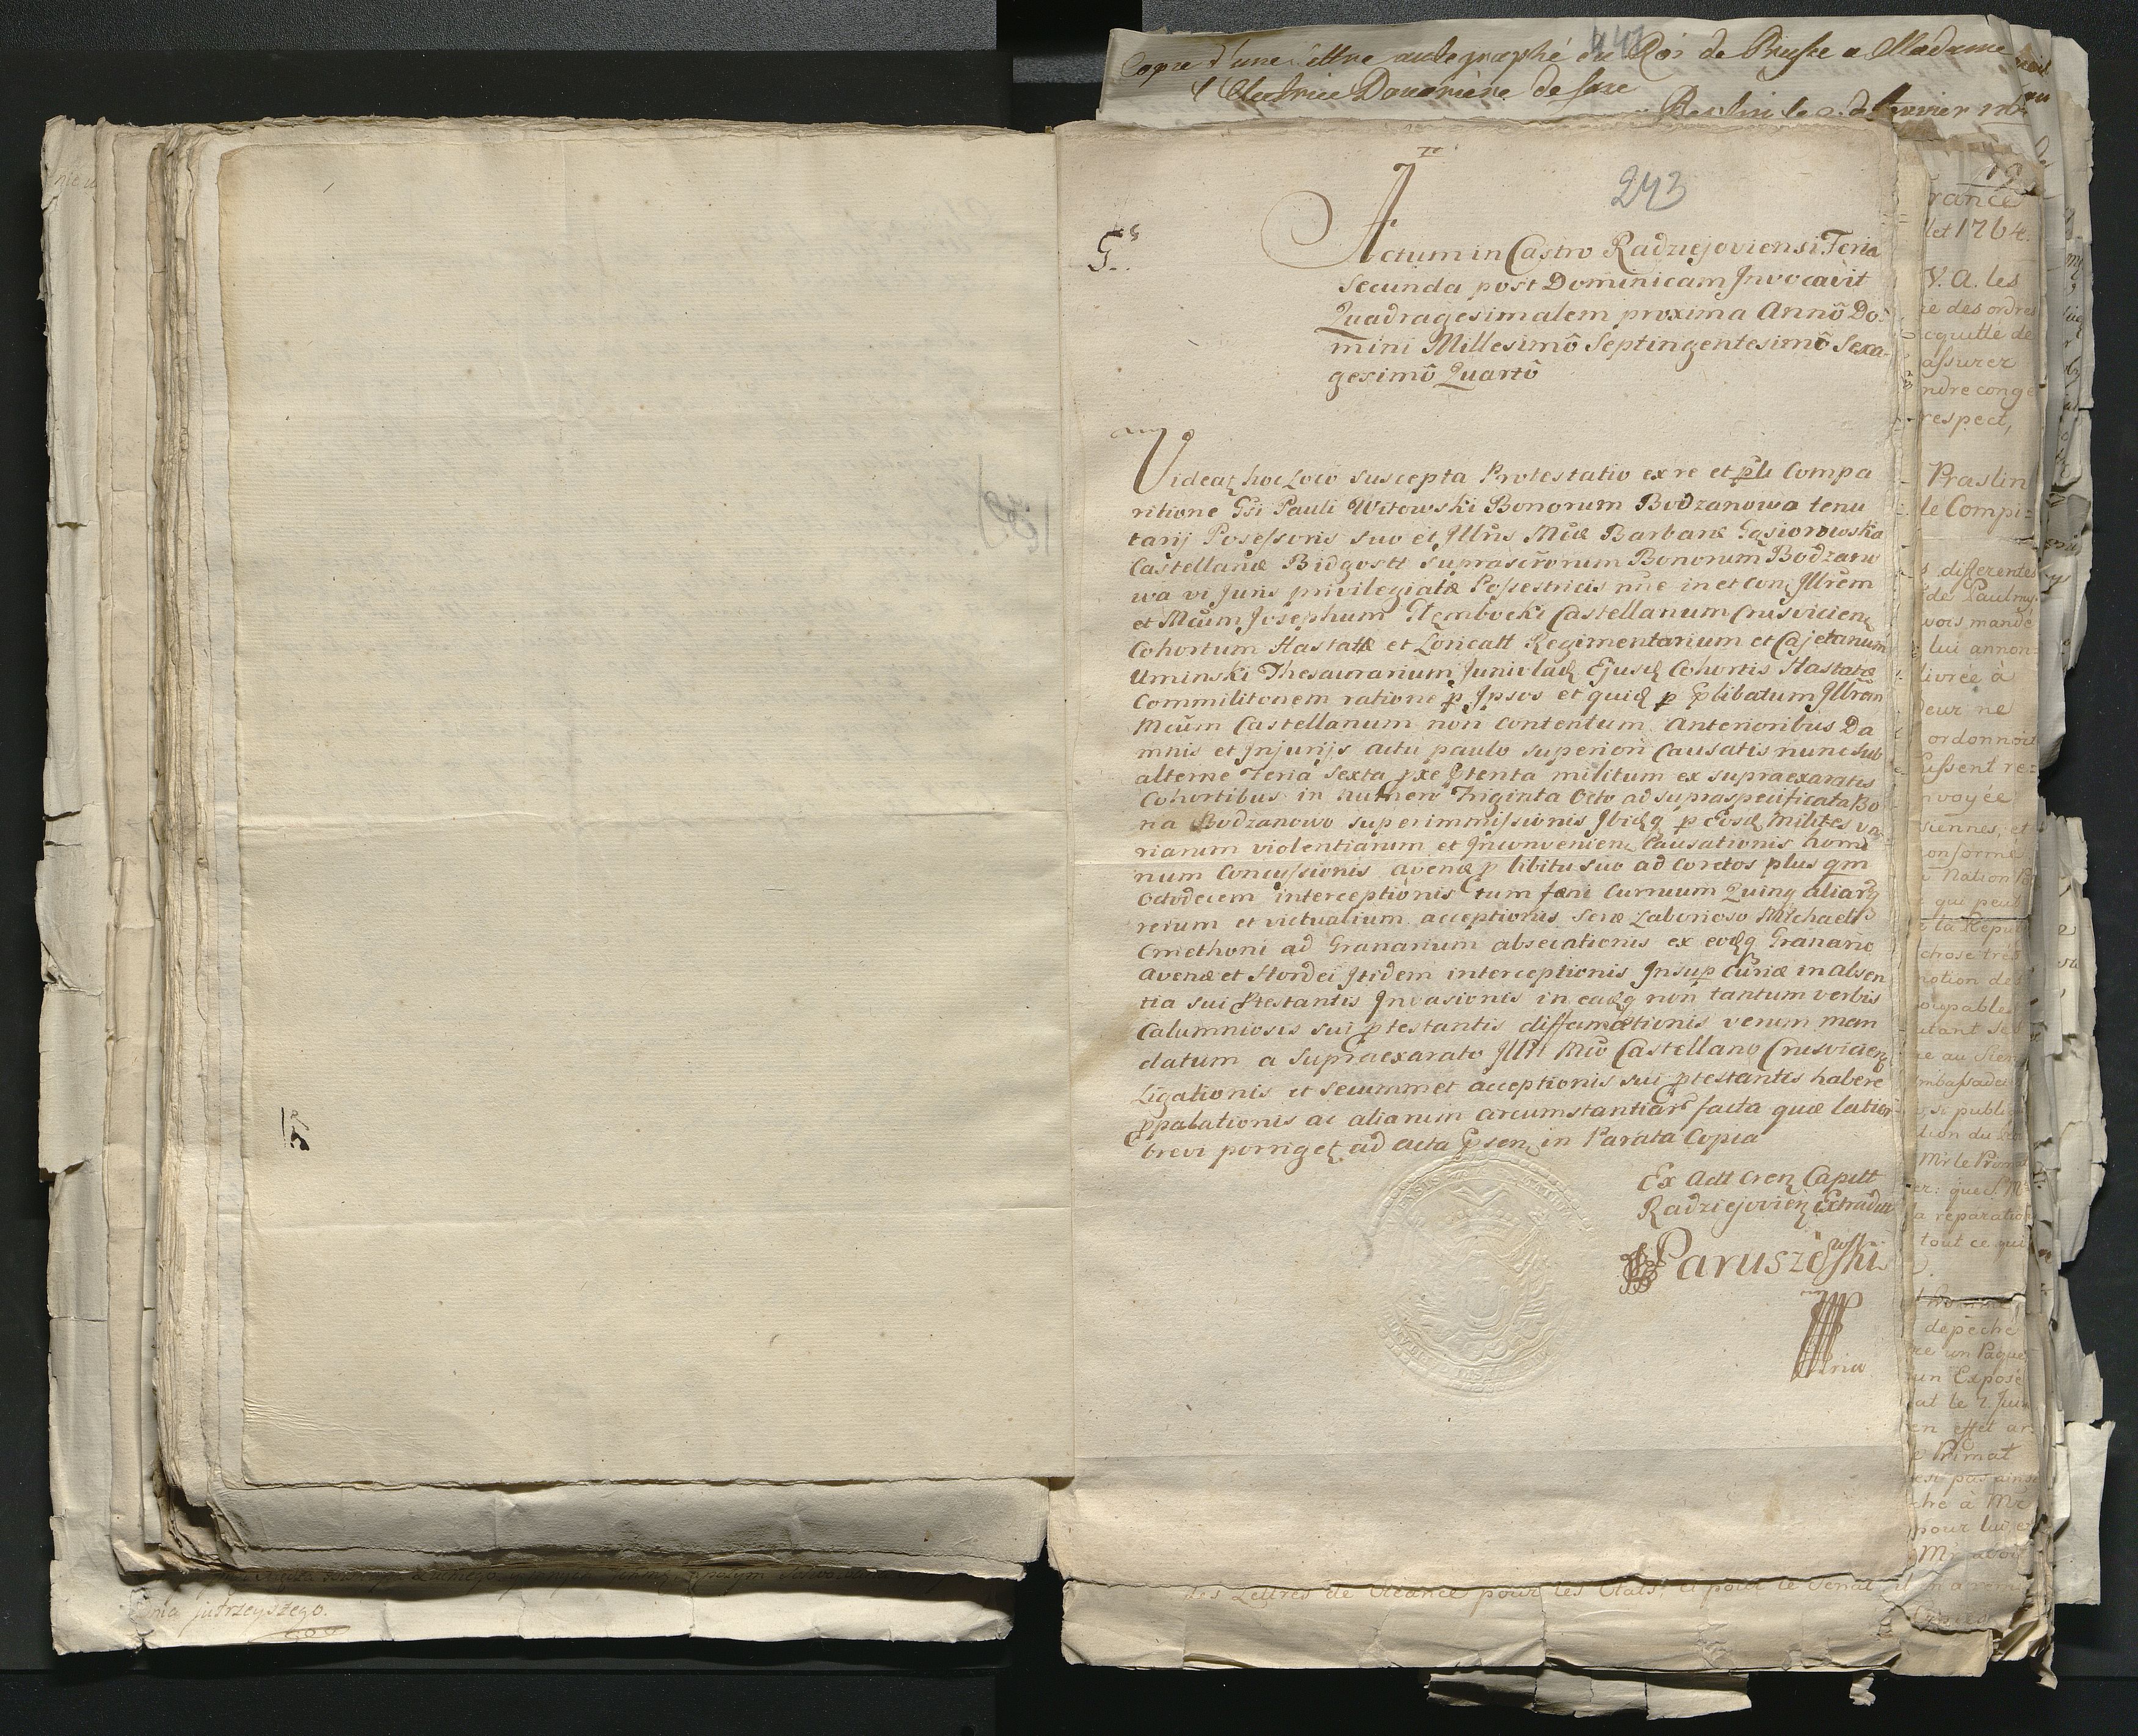 Copie d'une lettre autographé du Roi de Prusse a Madame
l'Electrice Douairiere de Saxe
Berlin le
243
G.
Actum in Castro Radziejoviensi Feria
Secunda post Dominicam Invocavit
Quadragesimalem proxima Annô Do:
mini Millesimô Septingentesimô Sexa-
gesimô Quartô
Videat hoc Loco suscepta Protestatio ex re et pli Compa
ritione Gsi Pauli Witowski Bonorum Bodzanowa tenu
tarij Possessoris suo et Illris Mcæ Barbaræ Gąsiorowska
Castellanæ Bidgostt suprascrorum Bonorum Bodzano
wa vi Juris privilegiatæ Possestricis nne in et con Illrem
et Mcum Josephum Głębocki Castellanum Crusvicien
Cohortum Hastatæ et Loricatt Regimentarium et Cajetanum
Uminski Thesaurarium Juniwlad Ejusq Cohortis Hastatæ
Commilitonem ratione p Ipsos et quid p plibatum Illrem
Mcum Castellanum non contentum anterioribus Da
mnis et Injurijs actu paulo superiori Causatis nunc sub
alterne Feria Sexta pxe ptenta militum ex supraexaratis
Cohortibus in numero Triginta Octo ad supraspecificata Bo
na Bodzanowo superimmissionis Ibidq p Eosd Milites va
riarum violentiarum et Inconvenien Causationis homi
num Concussionis avenæ p libitu suo ad coretos plus qm
Octodecim interceptionis tum fæni Curruum Quinq aliarq
rerum et victualium acceptionis seræ Laborioso Michaeli
Cmethoni ad Granarium absecationis ex eodq Granario
avenæ et Hordei Itidem interceptionis Insup Curiæ in absen
tia sui ptestantis Invasionis in eadq non tantum verbis
Calumniosis sui ptestantis diffamationis verum man
datum a supraexarato Illri Mco Castellano Crusvicien
Ligationis et secummet acceptionis sui ptestantis habere
ppalationis ac aliarum circumstantiar facta quæ latior
brevi porriget ad acta psen in Parata Copia
Ex Actt Cren Capitt
Radziejovien Extradit
Paruszewski
rance
let 1764.
V. A. les
ie des ordres
cquitte de
assurer
ndre congé
respect,
Praslin
le Compi=
s differentes
de Paulmy
vois mande
lui annon=
livrée à
deur ne
ordonnoit
ussent re=
nvoyée
siennes, et
onforme
a Nation Po
t qui peut
e la Repub
chose très
notion des
oupables
utant ses
ue au Sien
mbassade
se public
tion du
Mr le Primat
er: que S. M
la reparation
tout ce qui
depeche
re un Paquet
un Exposé
at le 7. Juin
en effet ar=
e Primat
est pas ainsi
che à Mr
pour lui et
Mr avoit
des Lettres de Creance pour les Etats, et pour le Senat, il n'a
nia jutrzeyszego.